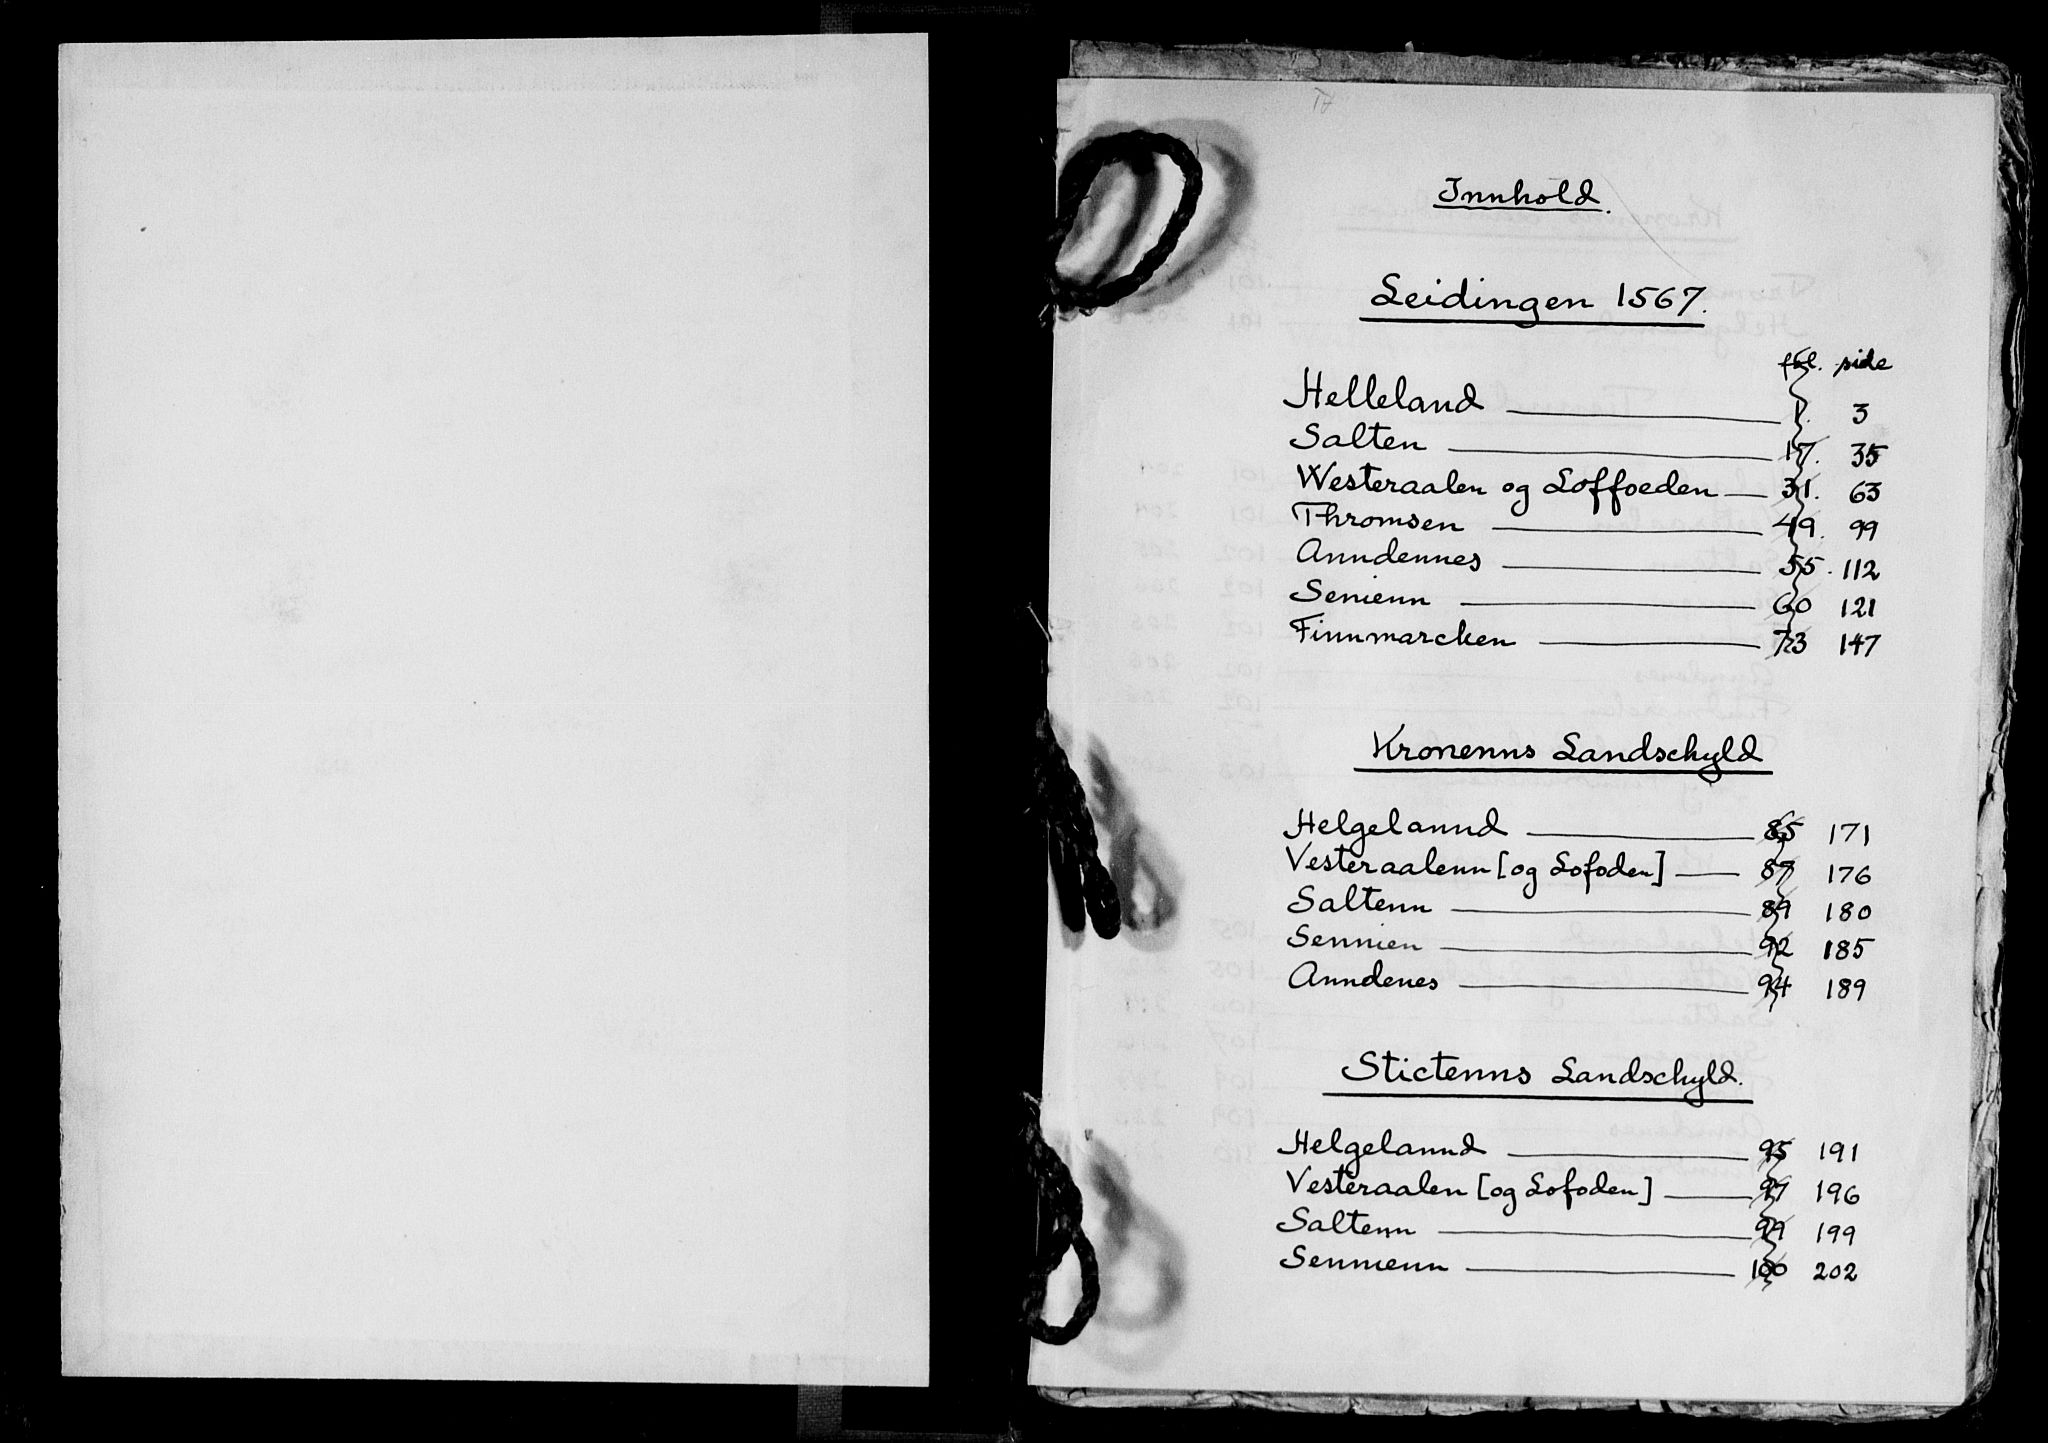 Innhold.
Leidingen 1567.
fol. side
Helleland 1. 3
Salten 17. 35
Westeraalen og Loffoeden 31. 63
Thromsen 49. 99
Anndennes 55. 112
Senienn 60 121
Finnmarcken 73 147
Kronenns Landschyld
Helgelannd 85 171
Vesteraalenn [og Lofoden] 87 176
Saltenn 89 180
Sennien 92 185
Anndenes 94 189
Stictenns Landschyld.
Helgelannd 95 191
Vesteraalen [og Lofoden] 97 196
Saltenn 99 199
Sennienn 100 202